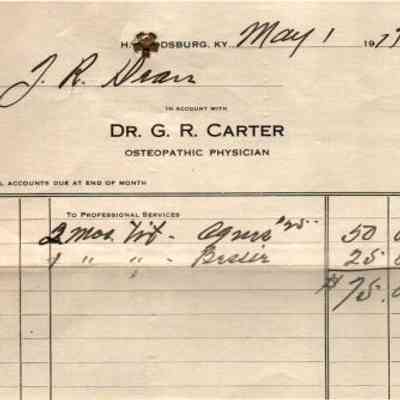 H DSBURG, KY. May 1 191
J. R. Dean
IN ACCOUNT WITH
DR. G. R. CARTER
OSTEOPATHIC PHYSICIAN
L ACCOUNTS DUE AT END OF MONTH
TO PROFESSIONAL SERVICES
2 Mos Trt - Agnes $25.00 50 0
1 " " - Bessie 25 0
$75.0